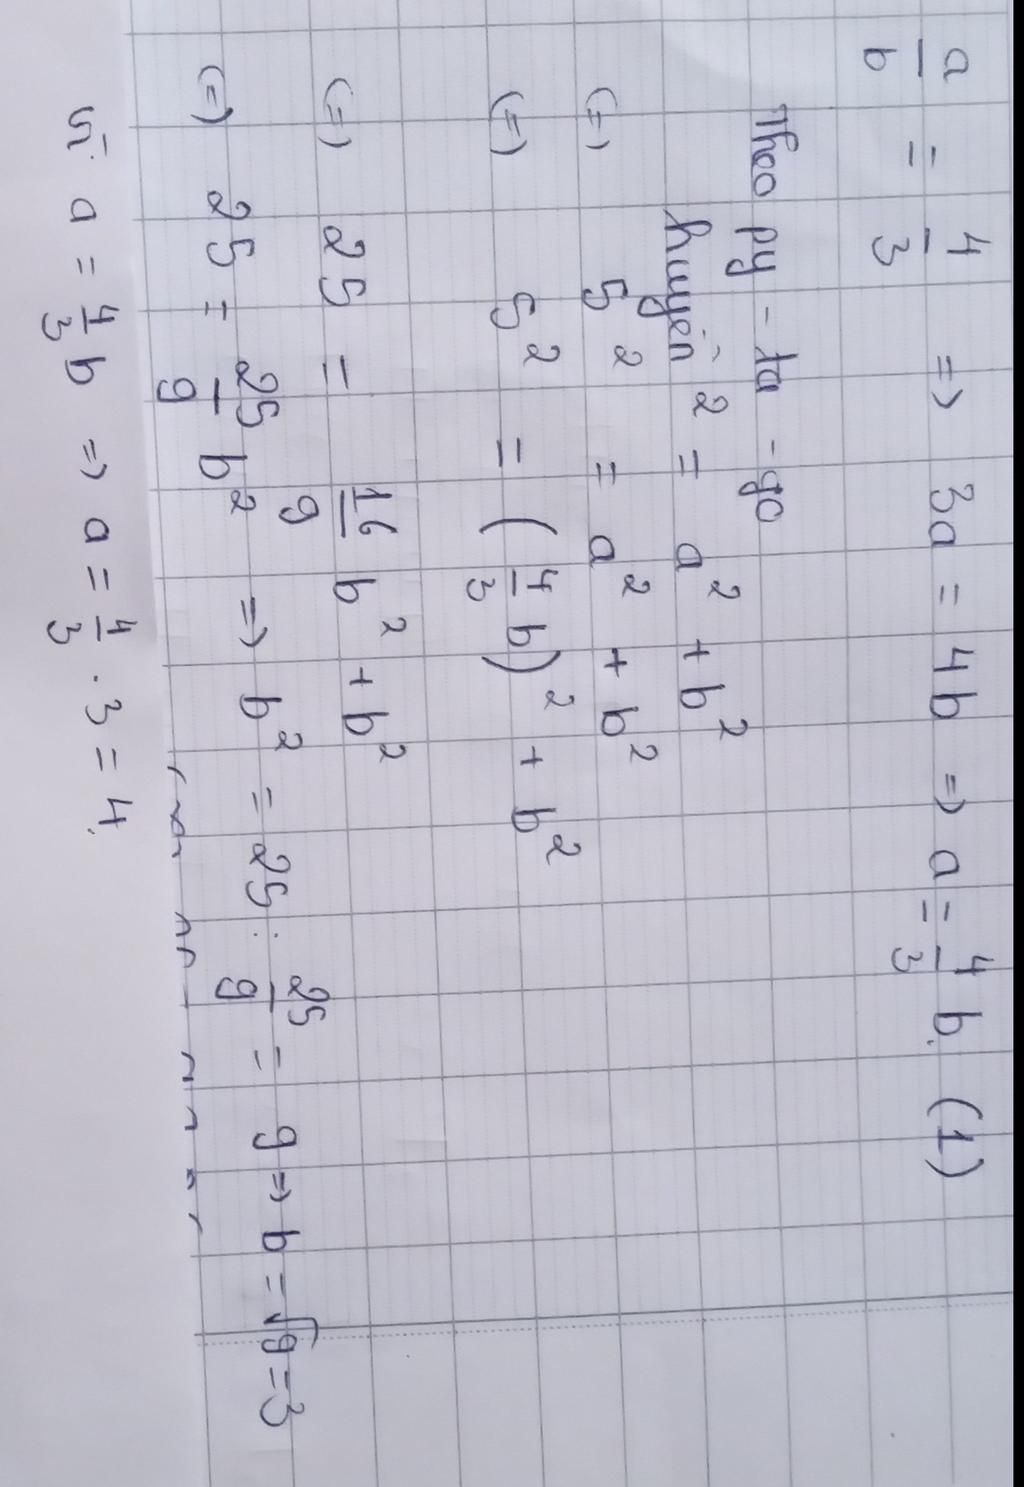 a/b = 4/3 => 3a = 4b => a = 4/3 b. (1)
Theo py - ta - go
huyền² = a² + b²
(=) 5² = a² + b²
(=) 5² = (4/3 b)² + b²
(=) 25 = 16/9 b² + b²
(=) 25 = 25/9 b² => b² = 25 : 25/9 = 9 => b = √9 = 3
Vì a = 4/3 b => a = 4/3 . 3 = 4.